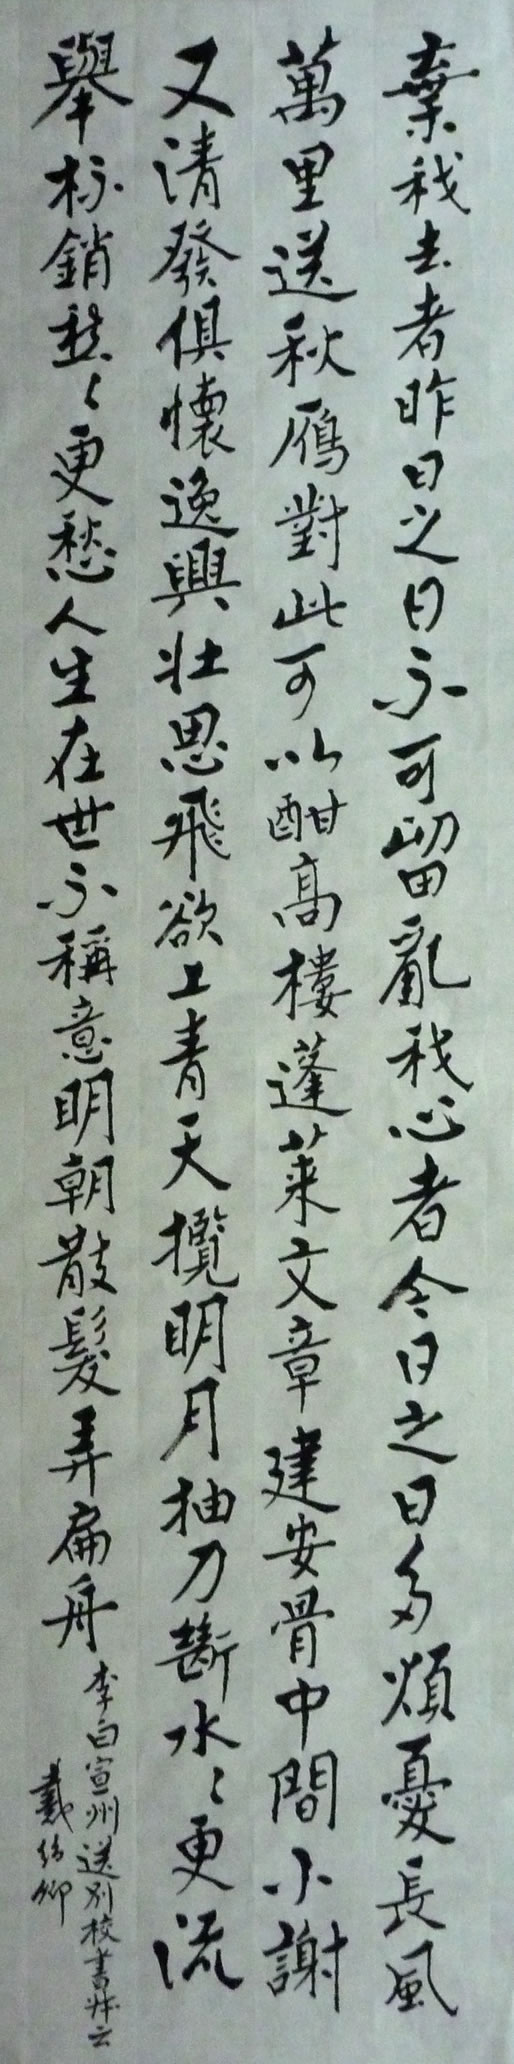 棄我去者昨日之日不可留亂我心者今日之日多煩憂長風
萬里送秋鴈對此可以酣高樓蓬萊文章建安骨中間小謝
又清發俱懷逸興壯思飛欲上青天攬明月抽刀斷水〻更流
舉杯銷愁〻更愁人生在世不稱意明朝散髮弄扁舟
李白宣州送別校書叔云
戴